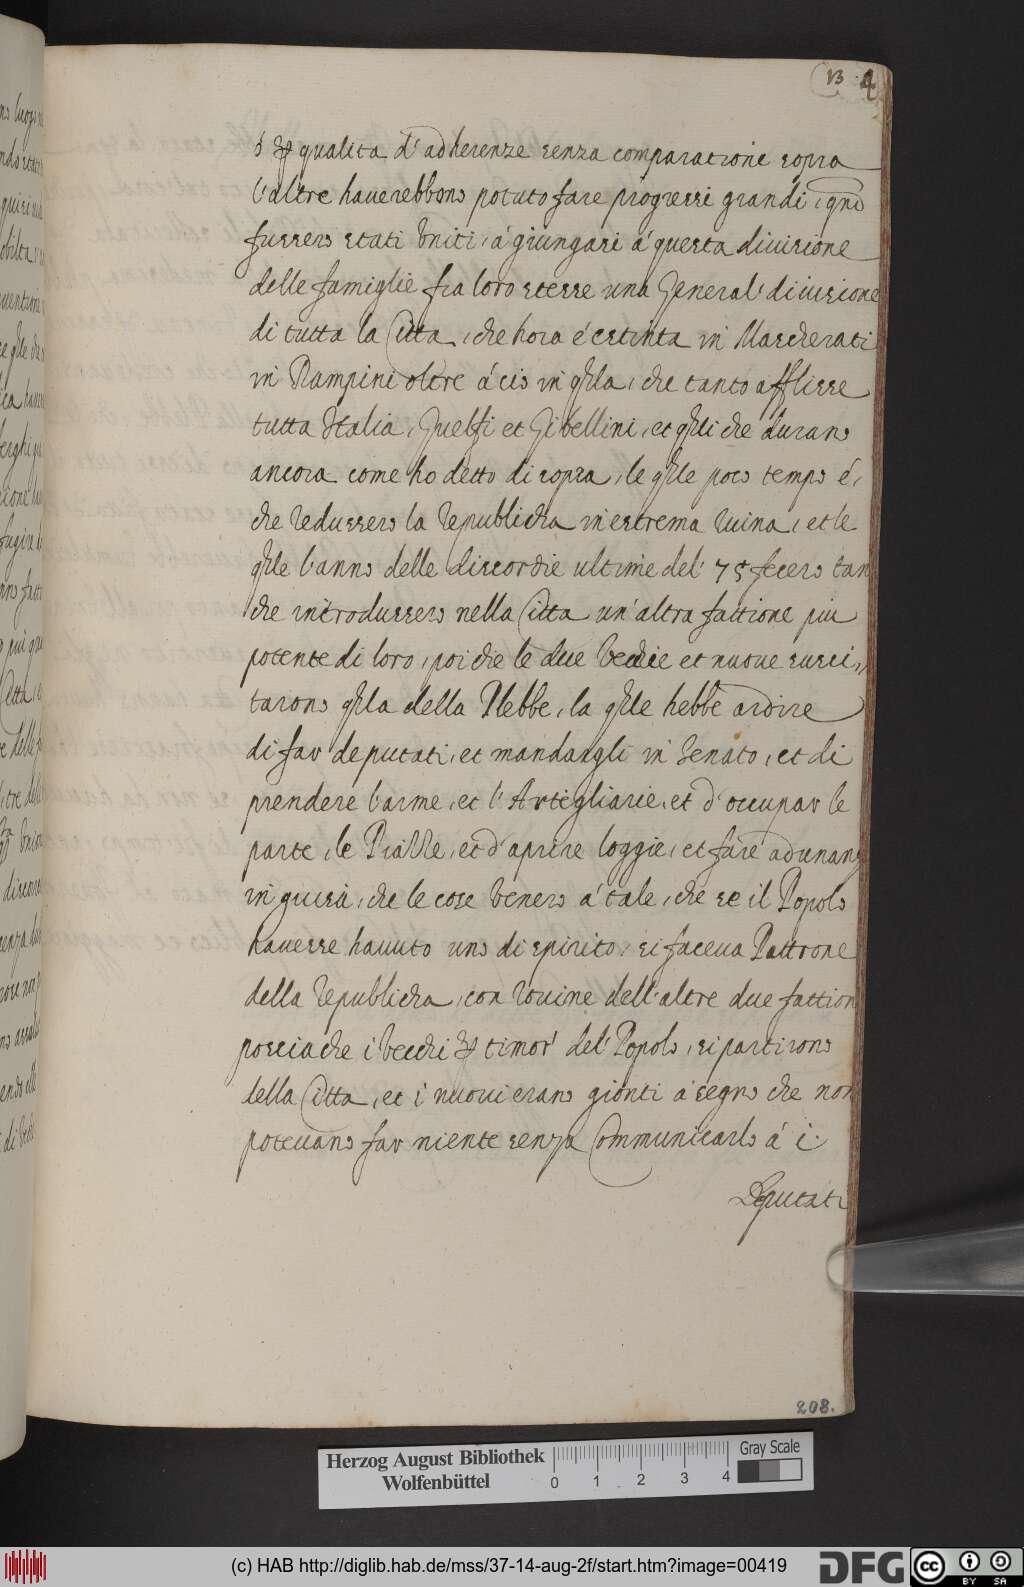 13 4
ó p qualita d'adherenze senza comparatione sopra
l'altre haverebbono potuto fare progressi grandi, qnō
fussero stati Uniti, á giungasi á questa divisione
delle famiglie fra loro stesse una General' divisione
di tutta la Citta, che hora é estinta in Mascherati
in Rampini oltre á cio in qlla, che tanto afflisse
tutta Italia, Guelfi et Gibellini, et qlli che durano
ancora come ho detto di sopra, le qle poco tempo é,
che redussero la republicha in estrema ruina, et le
qle l'anno delle discordie ultime del' 75 fecero tan
che introdussero nella Citta un'altra fattione piu
potente di loro, poi che le due vecchie et nuove susci,
tarono qlla della Plebbe, la qle hebbe ardire
di far deputati, et mandargli in Senato, et di
prendere l'arme, et l'Artigliarie, et d'occupar le
parte, le Piazze, et d'aprire loggie, et fare adunanz
in guisa, che le cose venero á tale, che se il Popolo
havesse havuto uno di spirito, si faceva Pattrone
della republicha, con rovine dell'altre due fattion
posciache i vecchi p timor' del' Popolo, si partirono
della Citta, et i nuovi erano gionti á segno che non
potevano far niente senza Communicarlo á i.
Deputati
208.
Herzog August Bibliothek
Wolfenbüttel
0 1 2 3 4
Gray Scale
(c) HAB http://diglib.hab.de/mss/37-14-aug-2f/start.htm?image=00419
DFG
cc BY SA